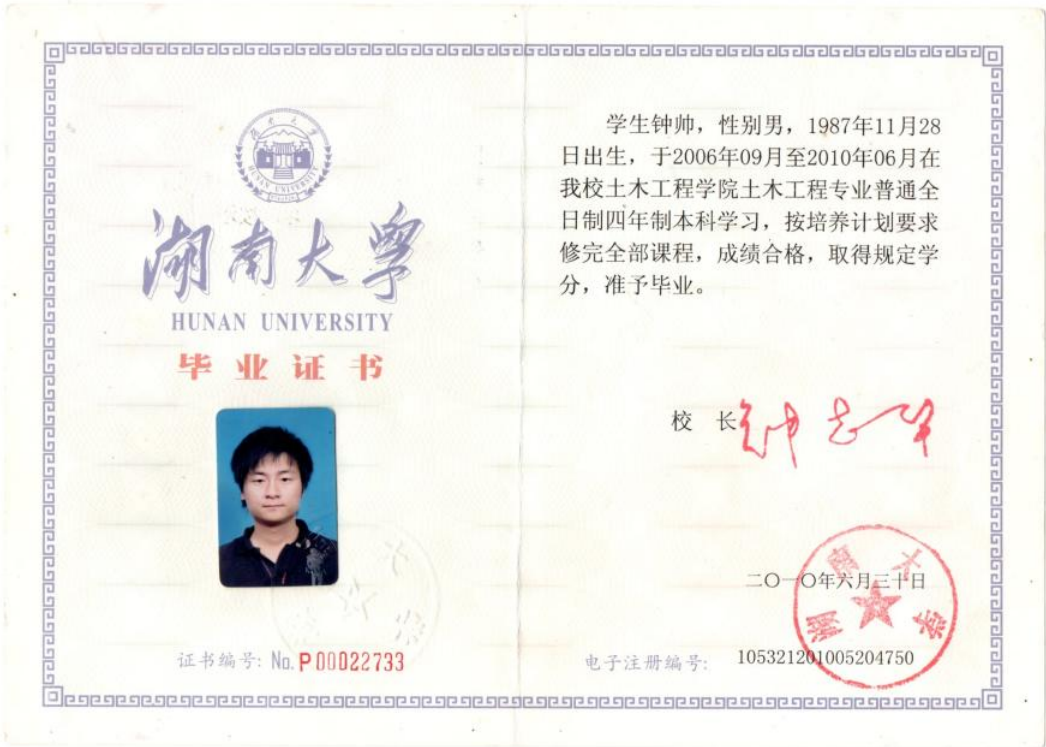 湖南大学
HUNAN UNIVERSITY
湖南大学
HUNAN UNIVERSITY
毕业证书
证书编号: No. P 00022733
学生钟帅，性别男，1987年11月28
日出生，于2006年09月至2010年06月在
我校土木工程学院土木工程专业普通全
日制四年制本科学习，按培养计划要求
修完全部课程，成绩合格，取得规定学
分，准予毕业。
校 长 钟志华
二〇一〇年六月三十日
湖南大学
电子注册编号: 105321201005204750